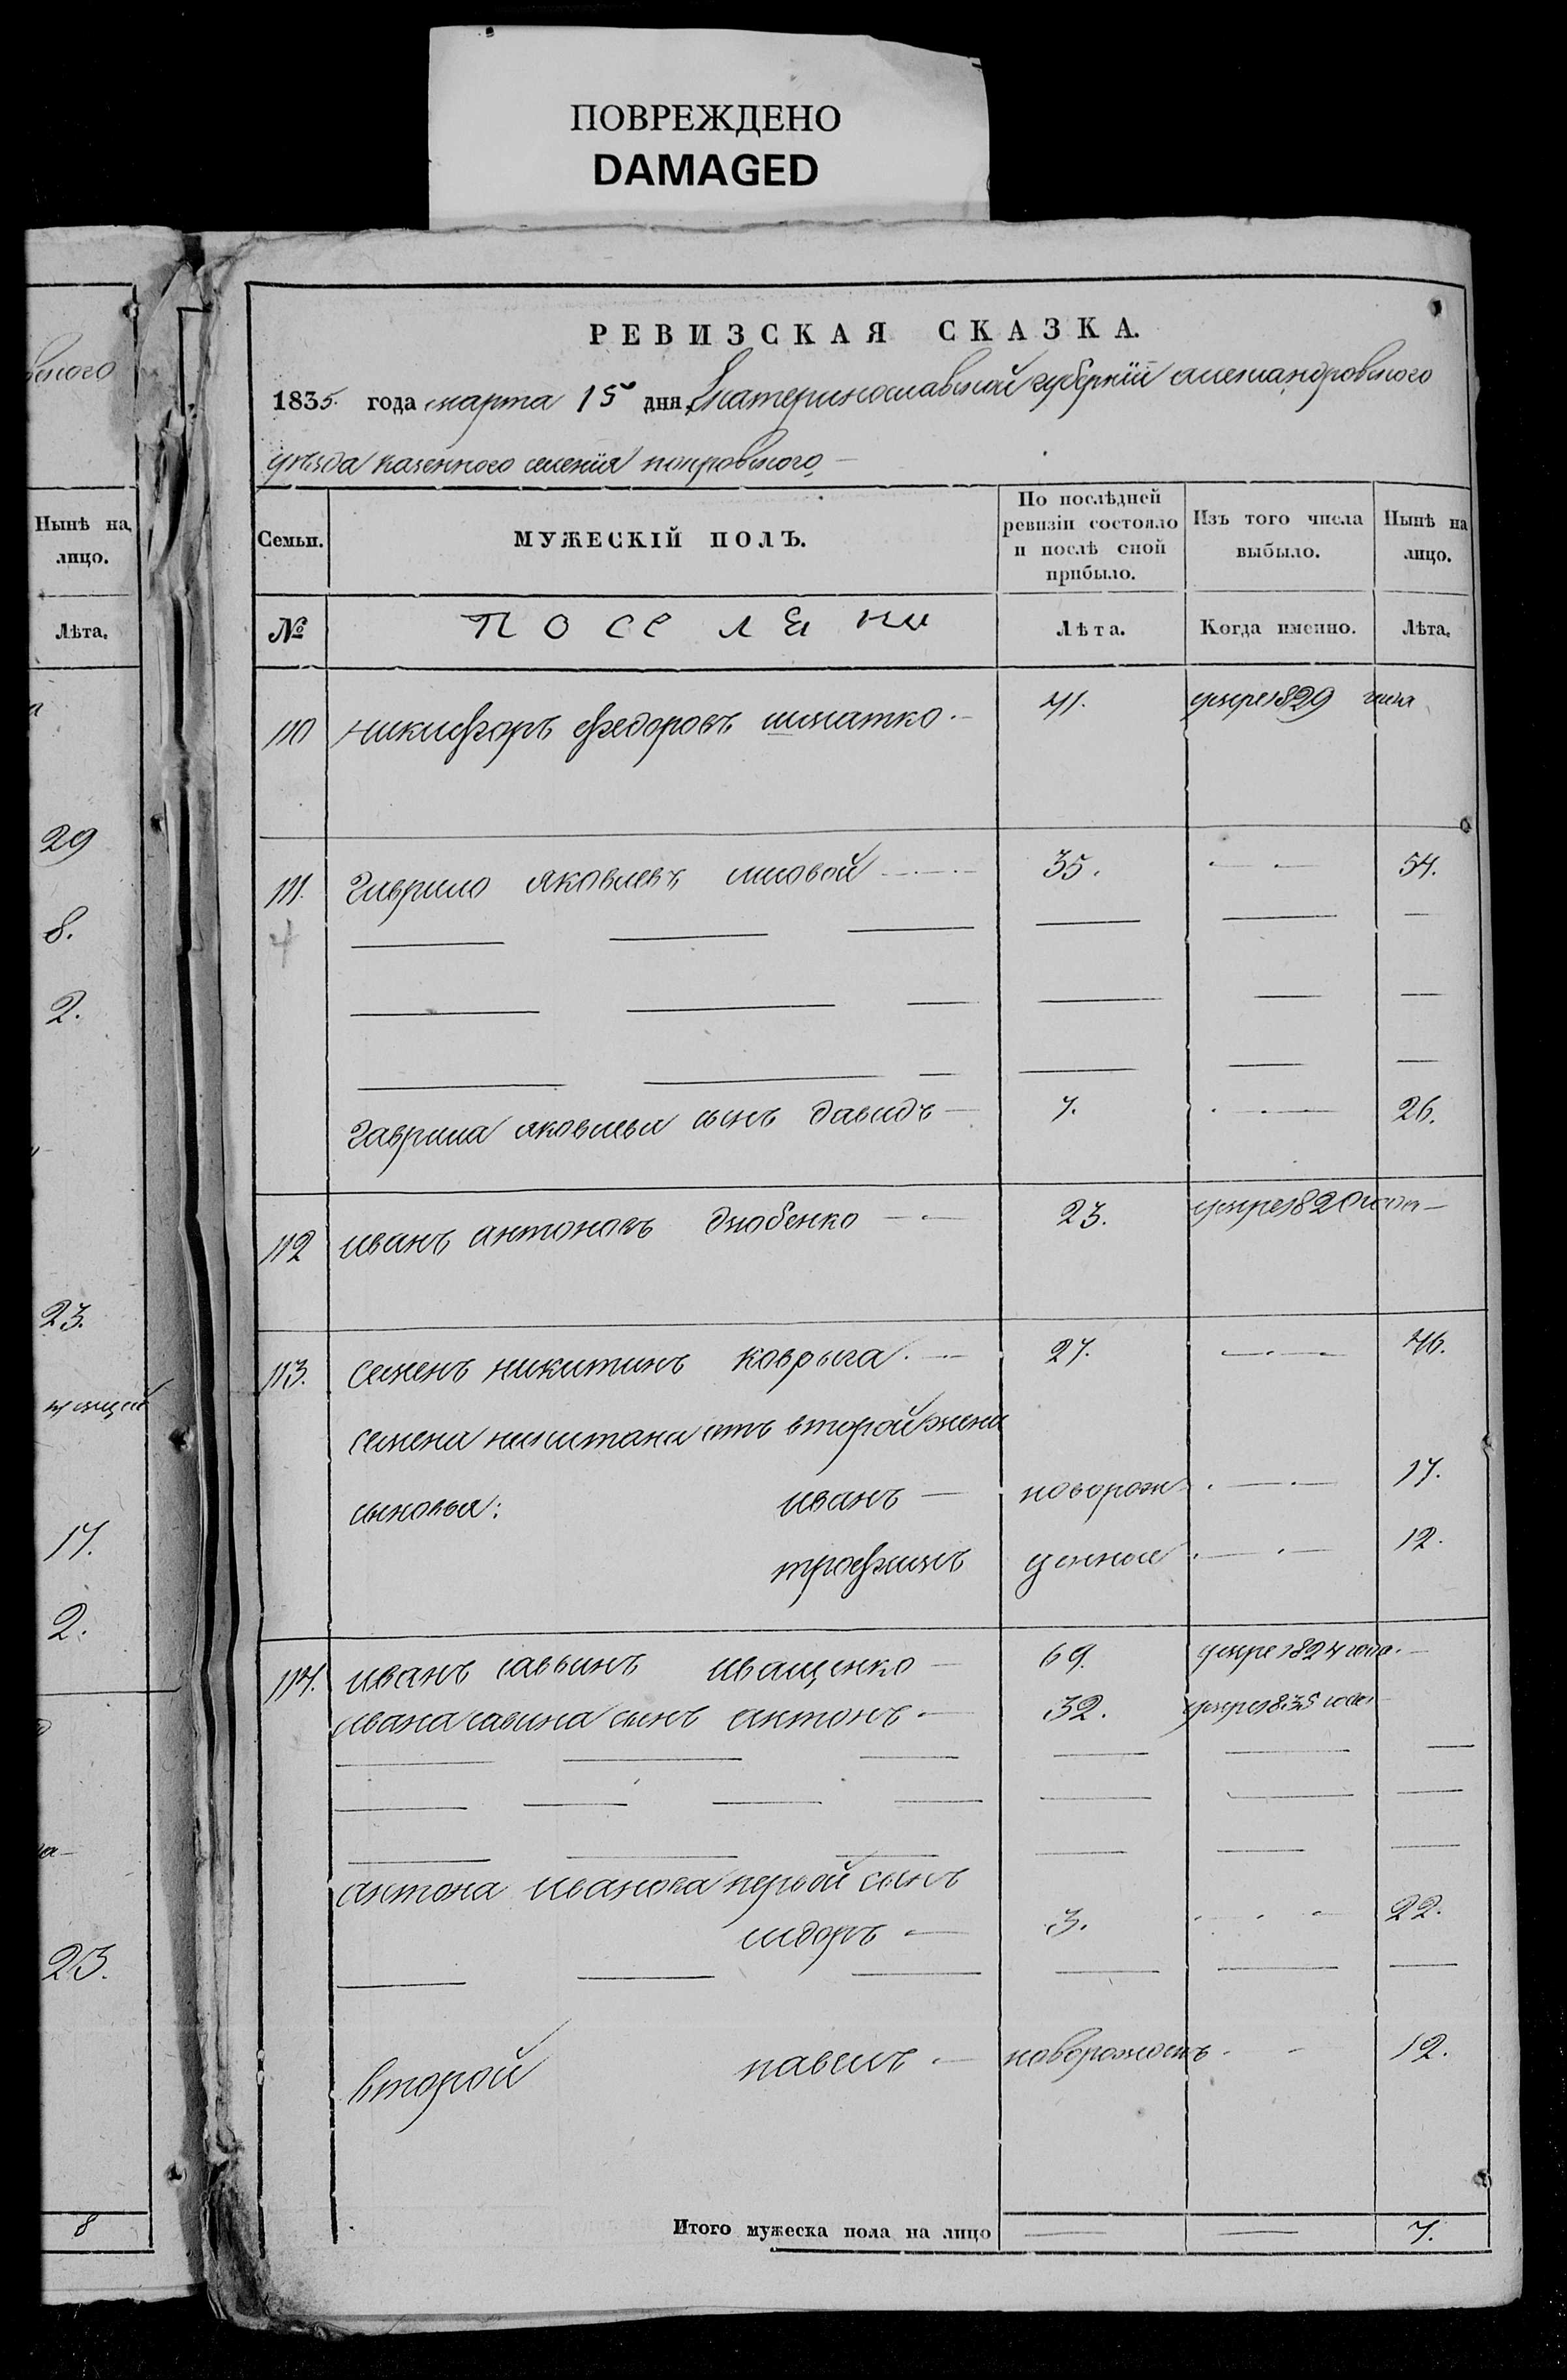 ПОВРЕЖДЕНО
DAMAGED
РЕВИЗСКАЯ СКАЗКА.
1835. года марта 15 дня, Екатеринославской губернiи александровского
уѣзда казенного селенiя покровского
Семьи.
МУЖЕСКIЙ ПОЛЪ.
По послѣдней ревизiи состояло и послѣ оной прибыло.
Изъ того числа выбыло.
Нынѣ на лицо.
№
поселяни
Лѣта.
Когда именно.
Лѣта.
110 никифоръ федоровъ шматко 41. умре 1829 года
111. гаврило яковлевъ лиховой 35. 54.
4
гаврила яковлева сынъ давидъ 7. 26.
112 иванъ антоновъ дзюбенко 23. умре 1820 года
113. семенъ никитинъ коврыга 27. 46.
семена никитина отъ второй жени
сыновья: иванъ новорож 17.
трофимъ денные 12.
114. иванъ савинъ иващенко 69. умре 1824 года
ивана савина сынъ антонъ 32. умре 1835 года
антона иванова первой сынъ
сидоръ 3. 22.
второй павелъ новорожденъ 12.
Итого мужеска пола на лицо 7.
Нынѣ на лицо.
Лѣта.
29
8.
2.
23.
17.
2.
23.
8